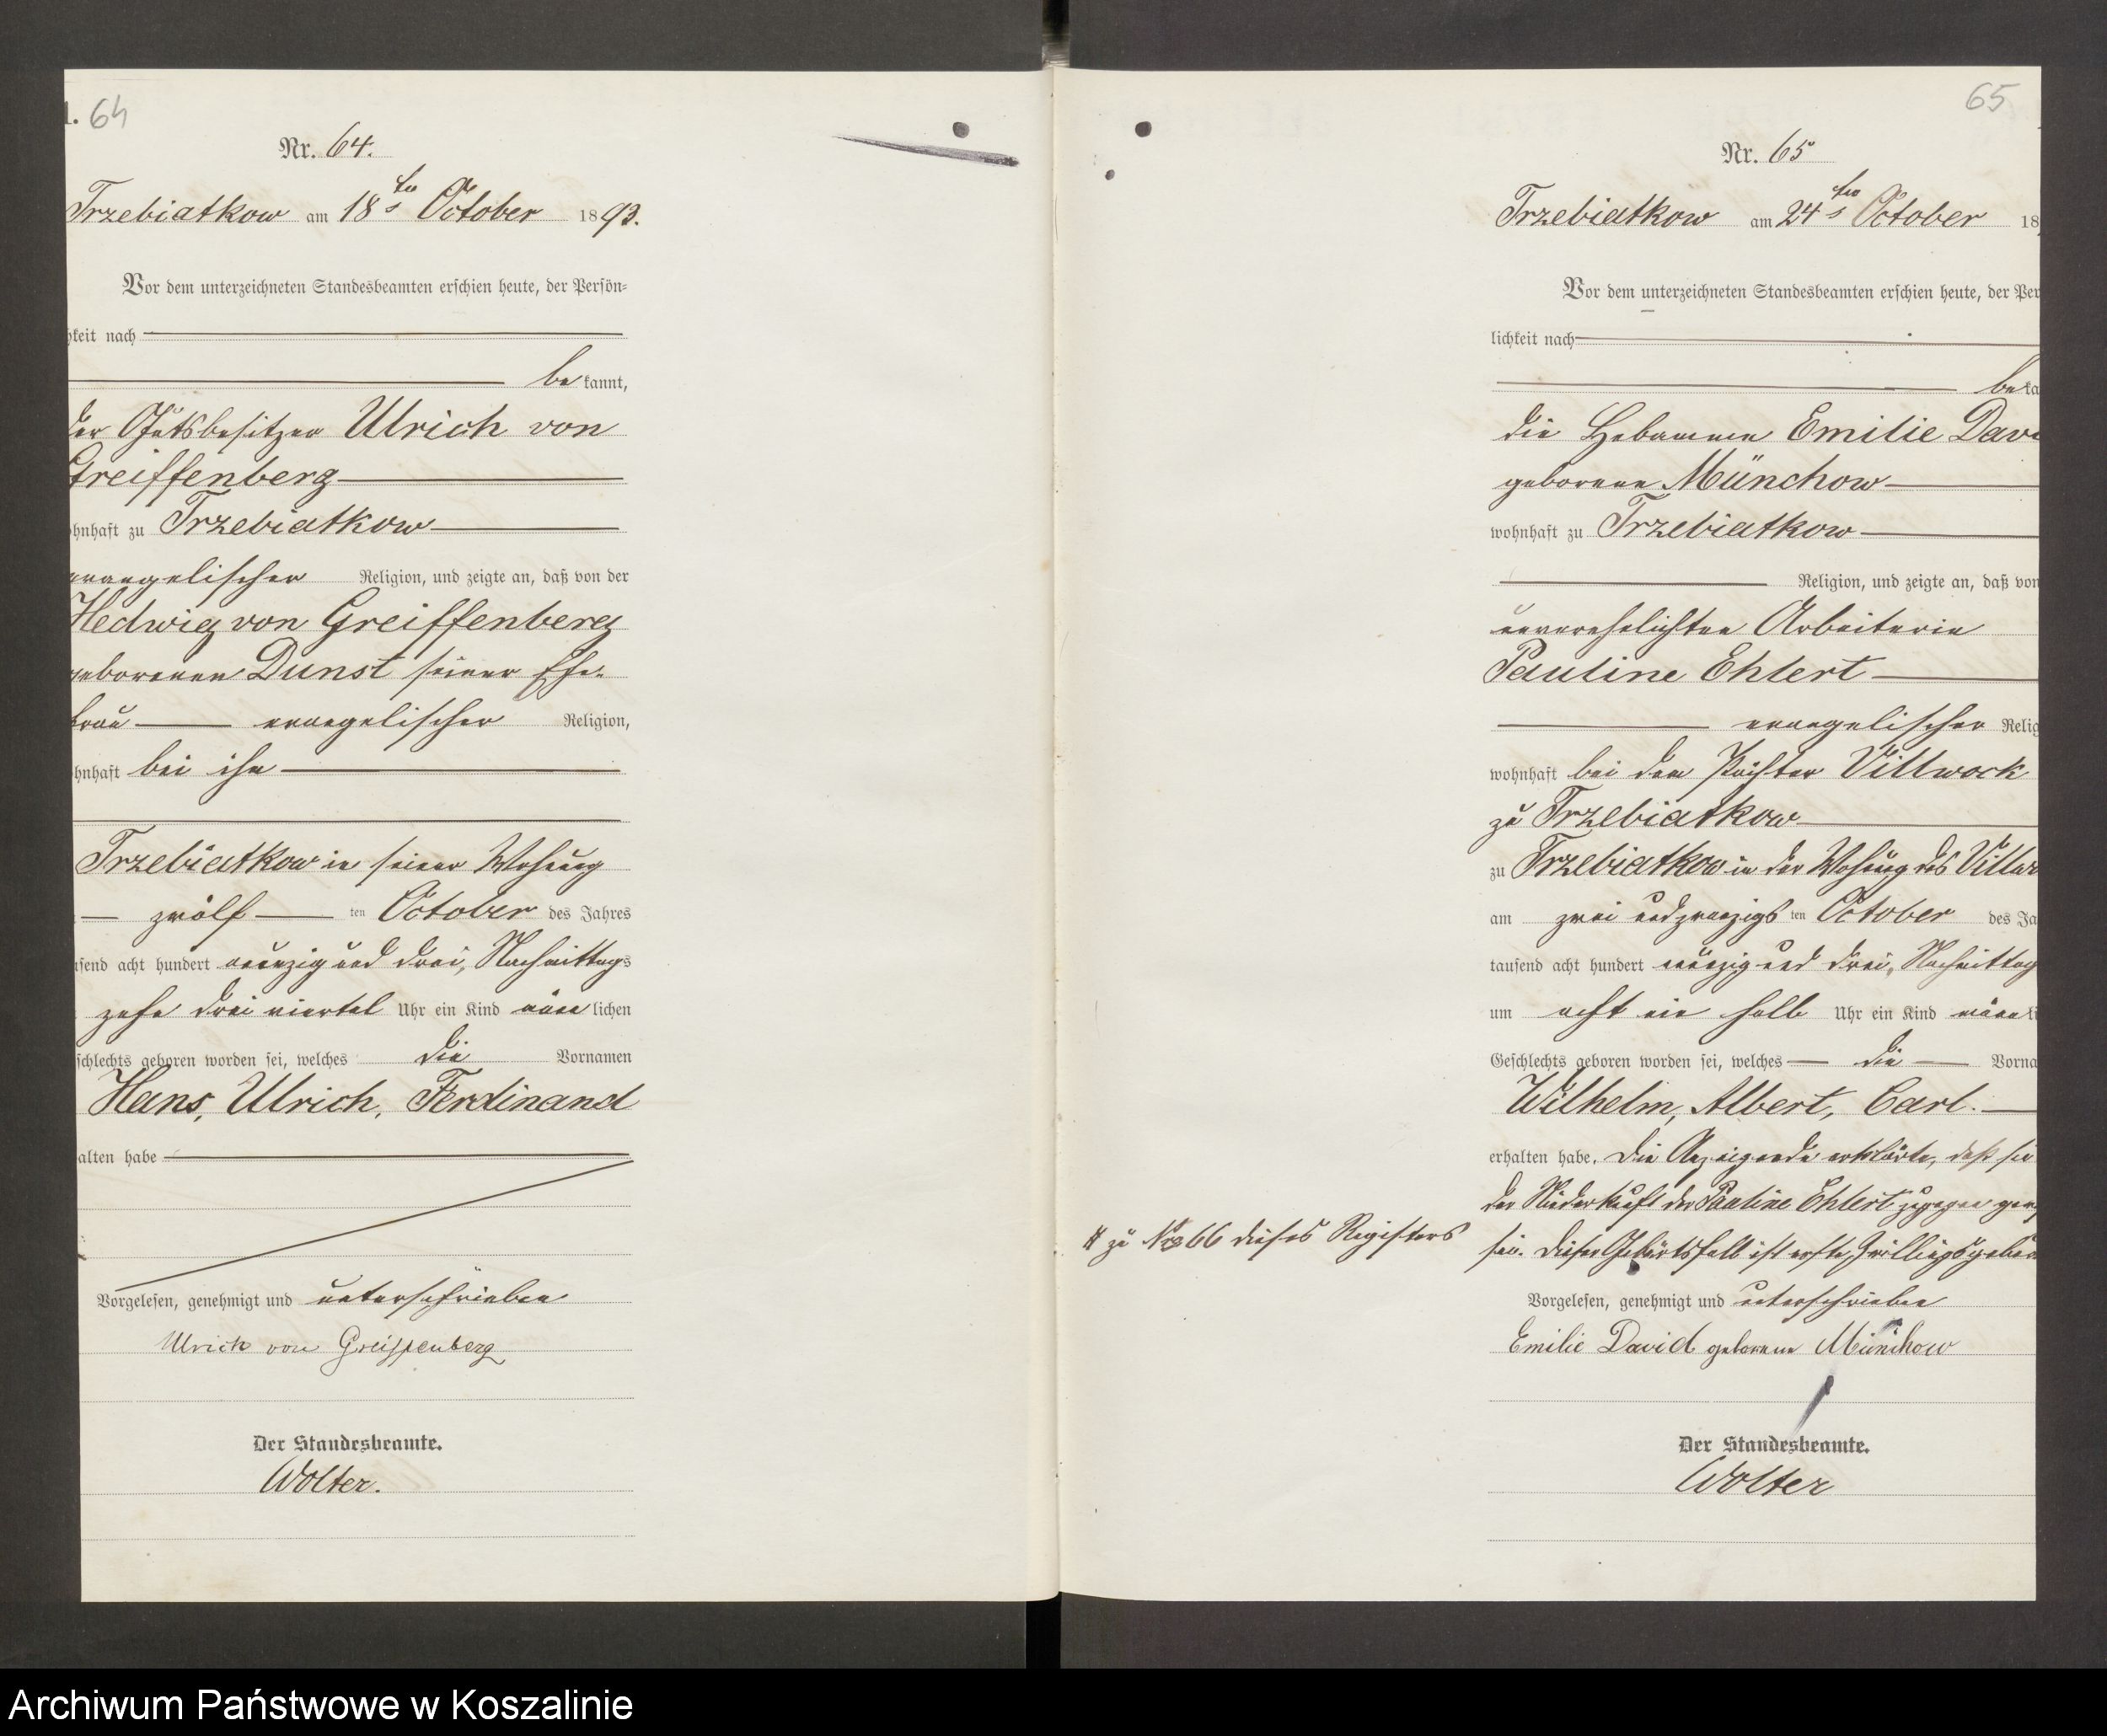 l. 64
Nr. 64.
Trzebiatkow am 18ten October 1893.
Vor dem unterzeichneten Standesbeamten erschien heute, der Persön-
hkeit nach
bekannt,
der Gutsbesitzer Ulrich von
Greiffenberg
ohnhaft zu Trzebiatkow
evangelischer Religion, und zeigte an, daß von der
Hedwig von Greiffenberg
geborenen Dunst seiner Ehe-
frau evangelischer Religion,
ohnhaft bei ihm
Trzebiatkow in seiner Wohnung
zwölf ten October des Jahres
usend acht hundert neunzig und drei, Nachmittags
zehn drei viertel Uhr ein Kind männlichen
schlechts geboren worden sei, welches die Vornamen
Hans, Ulrich, Ferdinand
alten habe
Vorgelesen, genehmigt und unterschrieben
Ulrich von Greiffenberg
Der Standesbeamte.
Wolter.
65
Nr. 65
Trzebiatkow am 24ten October 18
Vor dem unterzeichneten Standesbeamten erschien heute, der Per
lichkeit nach
beka
die Hebamme Emilie Davi
geborene Münchow
wohnhaft zu Trzebiatkow
Religion, und zeigte an, daß von
unverehelichten Arbeiterin
Pauline Ehlert
evangelischer Relig
wohnhaft bei dem Pächter Villwock
zu Trzebiatkow
zu Trzebiatkow in der Wohnung des Villw
am zwei und zwanzigs ten October des Ja
tausend acht hundert neunzig und drei, Nachmittag
um acht ein halb Uhr ein Kind männli
Geschlechts geboren worden sei, welches die Vorna
Wilhelm, Albert, Carl.
erhalten habe. Die Anzeigende erklärte, daß sie
der Niederkunft der Pauline Ehlert zugegen gew
sei. Dieser Geburtsfall ist erste Zwillingsgebur
# zu No 66 dieses Registers
Vorgelesen, genehmigt und unterschrieben
Emilie David geborene Münchow
Der Standesbeamte.
Wolter
Archiwum Państwowe w Koszalinie